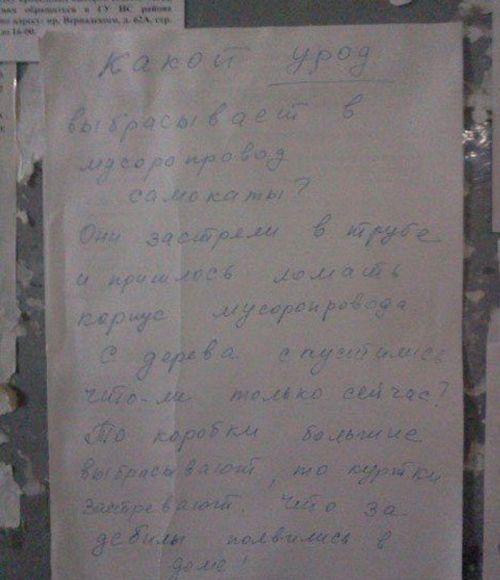 мках обращаться в ГУ ИС района
по адресу: пр. Вернадского, д. 62А, стр.
до 16-00.
Какой урод
выбрасывает в
мусоропровод
самокаты?
Они застряли в трубе
и пришлось ломать
корпус мусоропровода
С дерева спустились
что-ли только сейчас?
То коробки большие
выбрасывают, то куртки
застревают. Что за
дебилы появились в
доме!